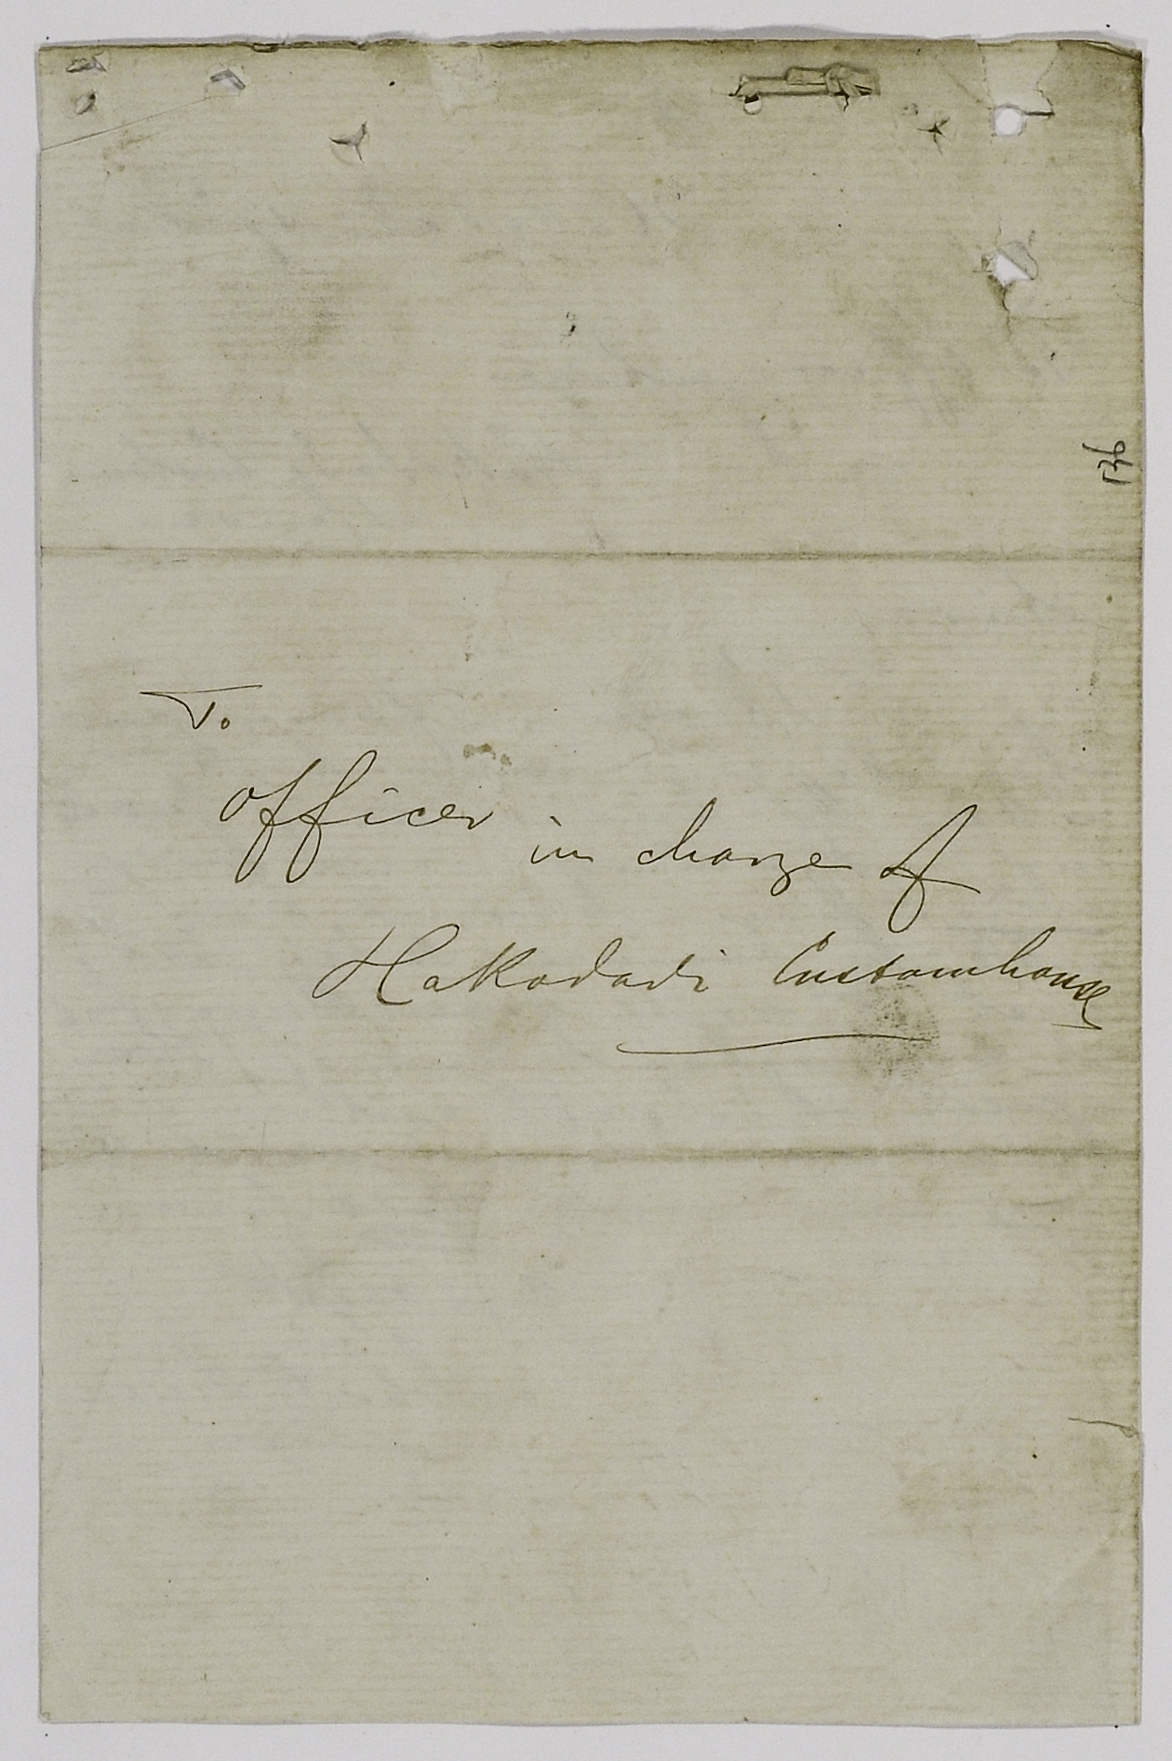 136
To
Officer in charge of
Hakodadi Customhouse